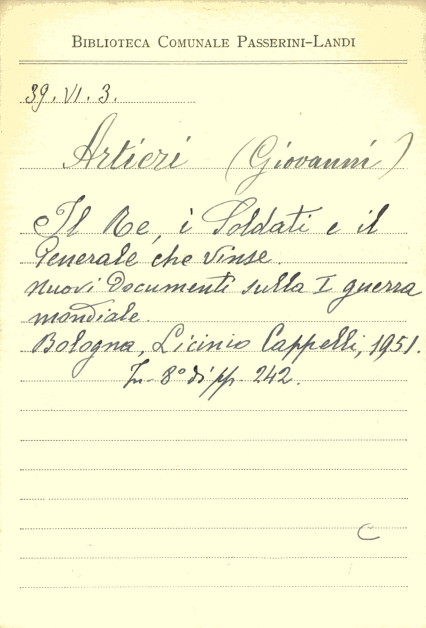 Biblioteca Comunale Passerini-Landi
39. VI. 3.
Artieri (Giovanni)
Il Re, i Soldati e il
Generale che vinse.
nuovi Documenti sulla I guerra
mondiale.
Bologna, Licinio Cappelli, 1951.
In- 8° di pp. 242.
C